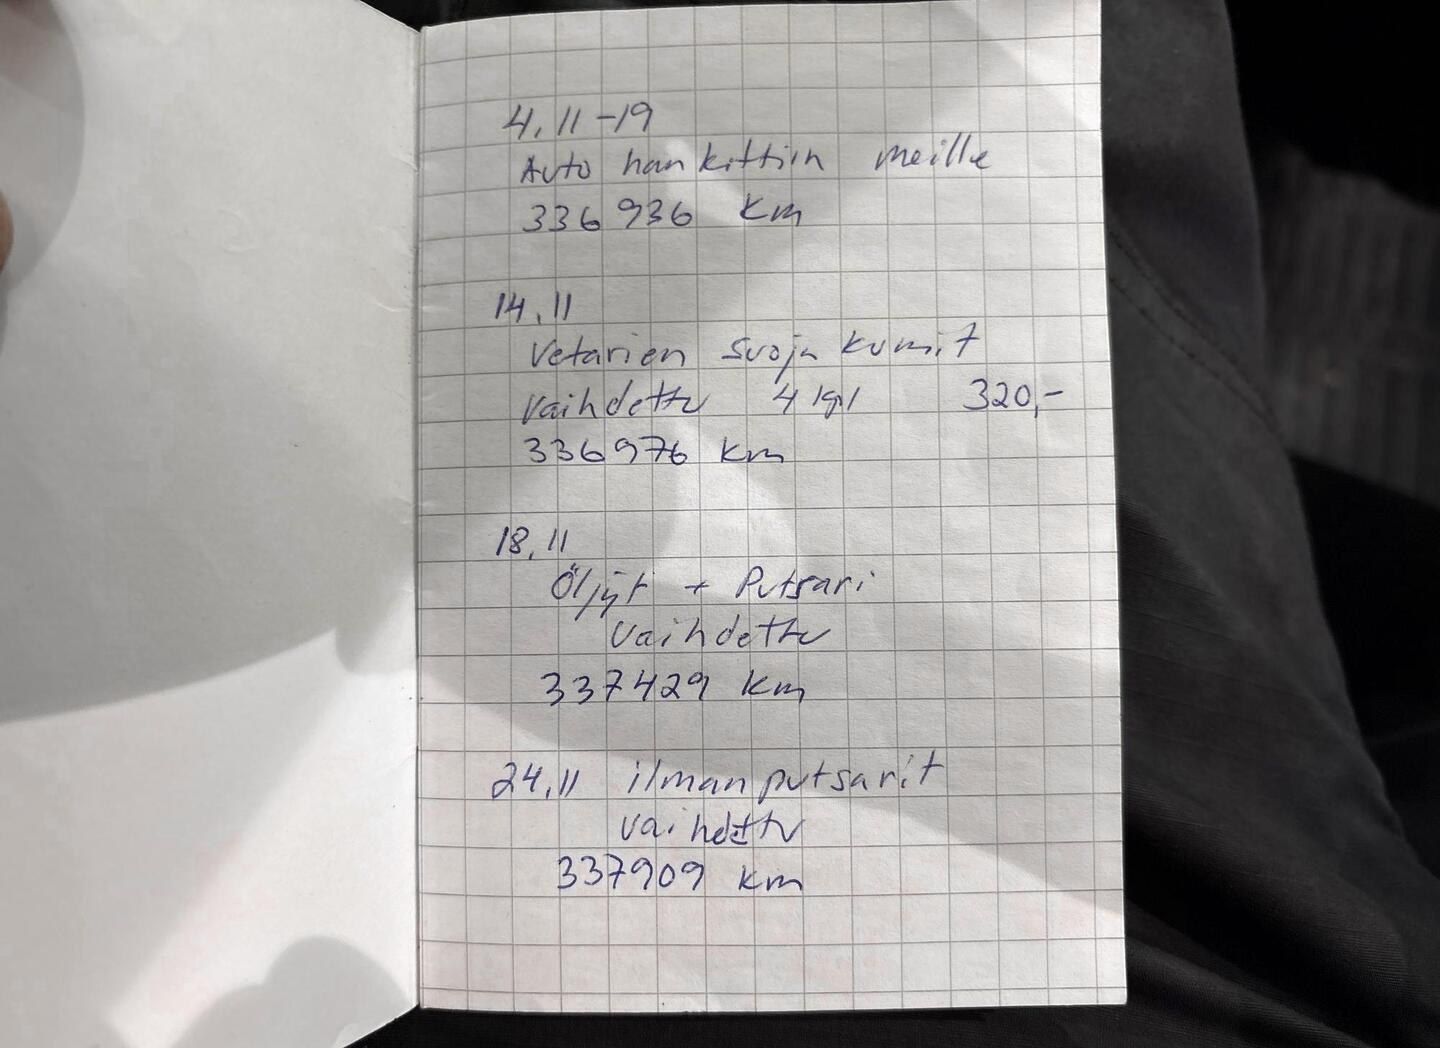 4.11-19
Auto hankittiin meille
336936 km
14.11
Vetarien suojakumit
vaihdettu 4 kpl 320,-
336976 km
18.11
Öljyt + Putsari
vaihdettu
337429 km
24.11 ilmanputsarit
vaihdettu
337909 km